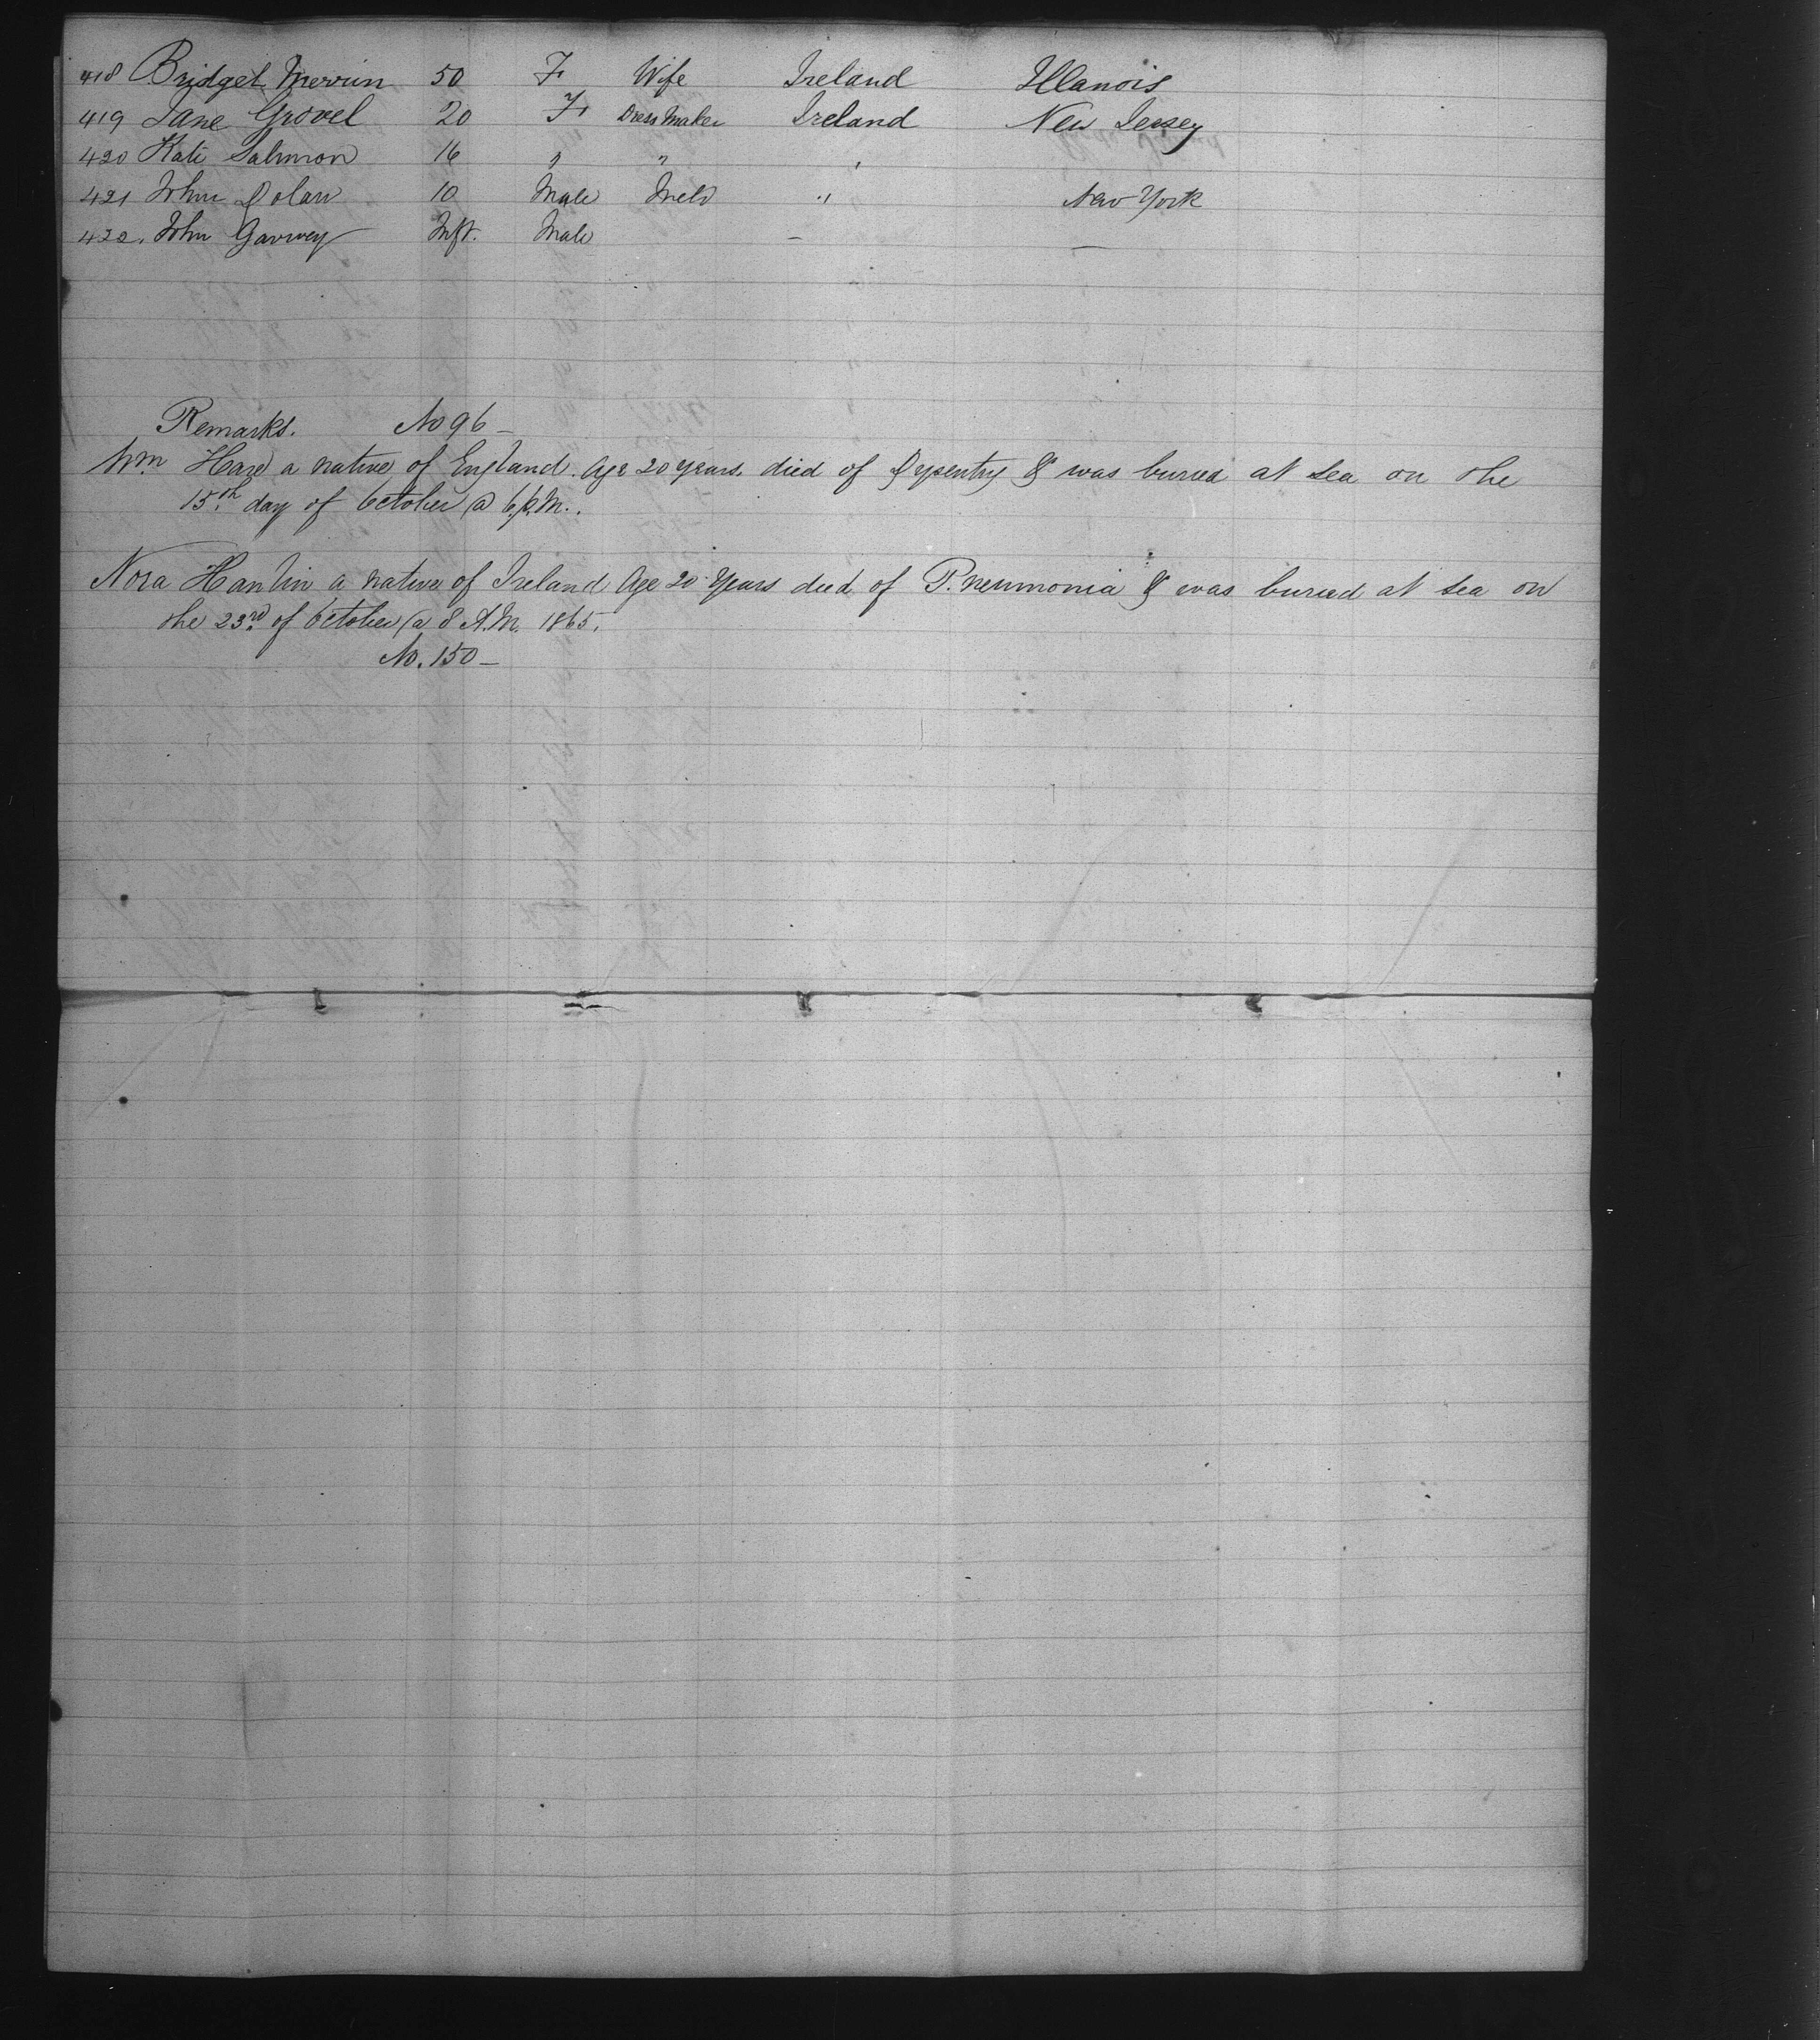 418 Bridget Merrin 50 F Wife Ireland Illanois
419 Jane Grovel 20 F Dress Maker Ireland New Jersey
420 Kate Salmon 16 " " "
421 John Dolan 10 Male " New York
422. John Garvey Inft. Male — —
Remarks. No 96 —
Wm Hare a native of England. Age 20 years. died of Dysentry & was buried at sea on the
15th day of October @ 6 p.M.
Nora Hanlin a native of Ireland Age 20 Years died of P.neumonia & was buried at sea on
the 23rd of October @ 8 A.M. 1865.
No. 150 —